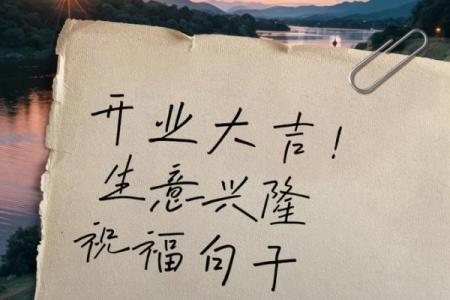 开业大吉！
生意兴隆
祝福句子